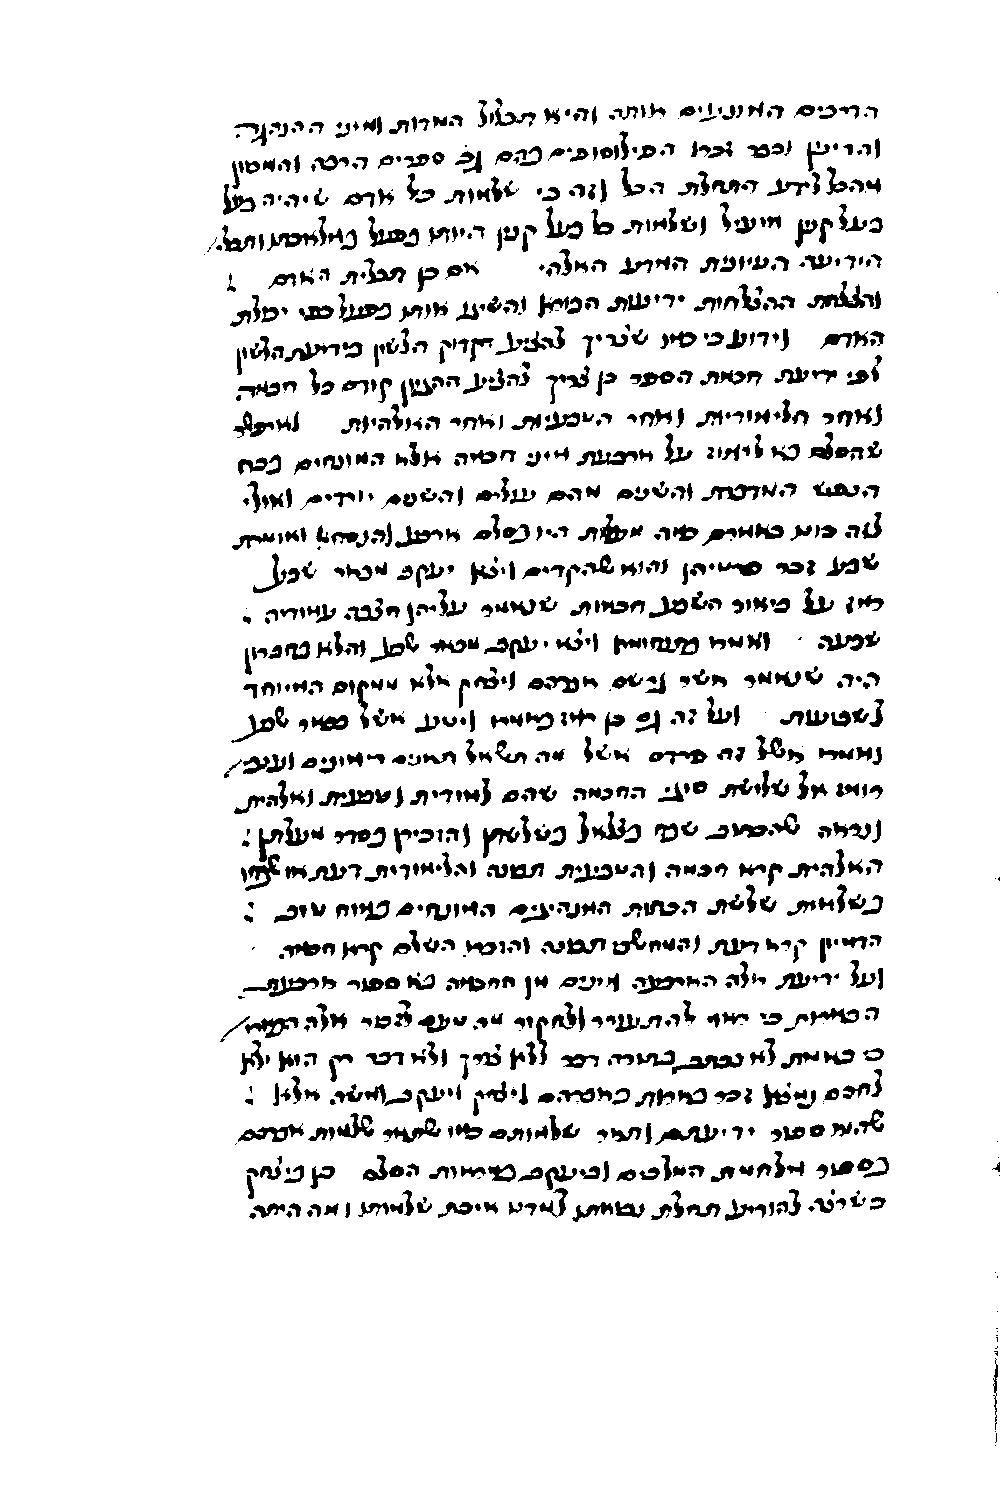 הדרכים המגיעים אותה והיא תכלול המדות ומיני ההנהגה
והדינין וכבר זכרו הפילוסופים בהם גם ספרים הרבה והמכוון
מהכל לידע התחלת הכל וזה כי שלמות כל אדם שיהיה בעל
בעל קנין מועיל ושלמות כל בעל קנין היותו בפעל במלאכתו ותכלי
הידיעה העיונית המדע האלהי אם כן תכלית האדם
והצלחת ההצלחות ידיעת הבורא והשיג אותו בפעל כפי יכולת
האדם וידוע כי כמו שצריך להציע דקדוק הלשון בידיעת הלשון
לפני ידיעת חכמת הספר כן צריך להציע ההגיון קודם כל חכמה
ואחר הלימודיות ואחר הטבעיות ואחר האלהיות ואיפשר
שהסלם בא לרמוז על ארבעת מיני חכמה אלא המונחים בכח
הנפש המדברת והשנים מהם עולים והשנים יורדים ואולי
לזה כוונו באמרם כמה מעלות היו בסלם ארבע והנוסחא אומרת
שבע זכר סימניהן והוא שהקדים ויצא יעקב מבאר שבע
רמז על ביאור השבע חכמות שנאמר עליהן חצבה עמודיה
שבעה ואמרו ויצא יעקב מבאר שבע והלא בחברון
היה שנאמר אשר גר שם אברהם ויצחק אלא ממקום המיוחד
לשבועות ועל זה גם כן רמז באמרו ויטע אשל בבאר שבע
ואמרו אשל זה פרדס אשל מה תשאל תאנים רמונים וענבי
רומז אל שלושת מיני החכמה שהם למודית וטבעית ואלהית
ונראה שהכתוב שם בצלאל בשלשתן והזכירן כסדר מעלתן
האלהית קרא חכמה והטבעית תבונה והלימודית דעת או שבחו
בשלמות שלשת הכחות המנהיגים המונחים במוח שכב
הדמיון קרא דעת והמחשב תבונה והזוכר השלם קרא חכמה
ועל ידיעת אלה הארבעה מינים מן החכמה בא ספור ארבעת
הבארות כי ראוי להתעורר ולחקור מה טעם לספר אלה הספורי
כי באמת לא נכתב בתורה דבר ללא צורך ולא דבר רק הוא אלא
לחכם נמצא זכר בארות באברהם ויצחק ויעקב ומשה אלא
שהוא ספור ידיעתם ותאר שלמותם כמו שתאר שלמות אברהם
בספור מלחמת המלכים וביעקב במראות הסלם כן ביצחק
כשרצה להודיע תחלת נבואתו לאדע איכות שלמותו ומה היתה